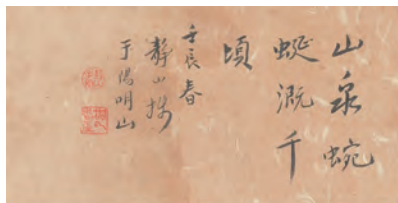 山泉蜿
蜒溉千
頃
壬辰春
靜山撰
于陽明山